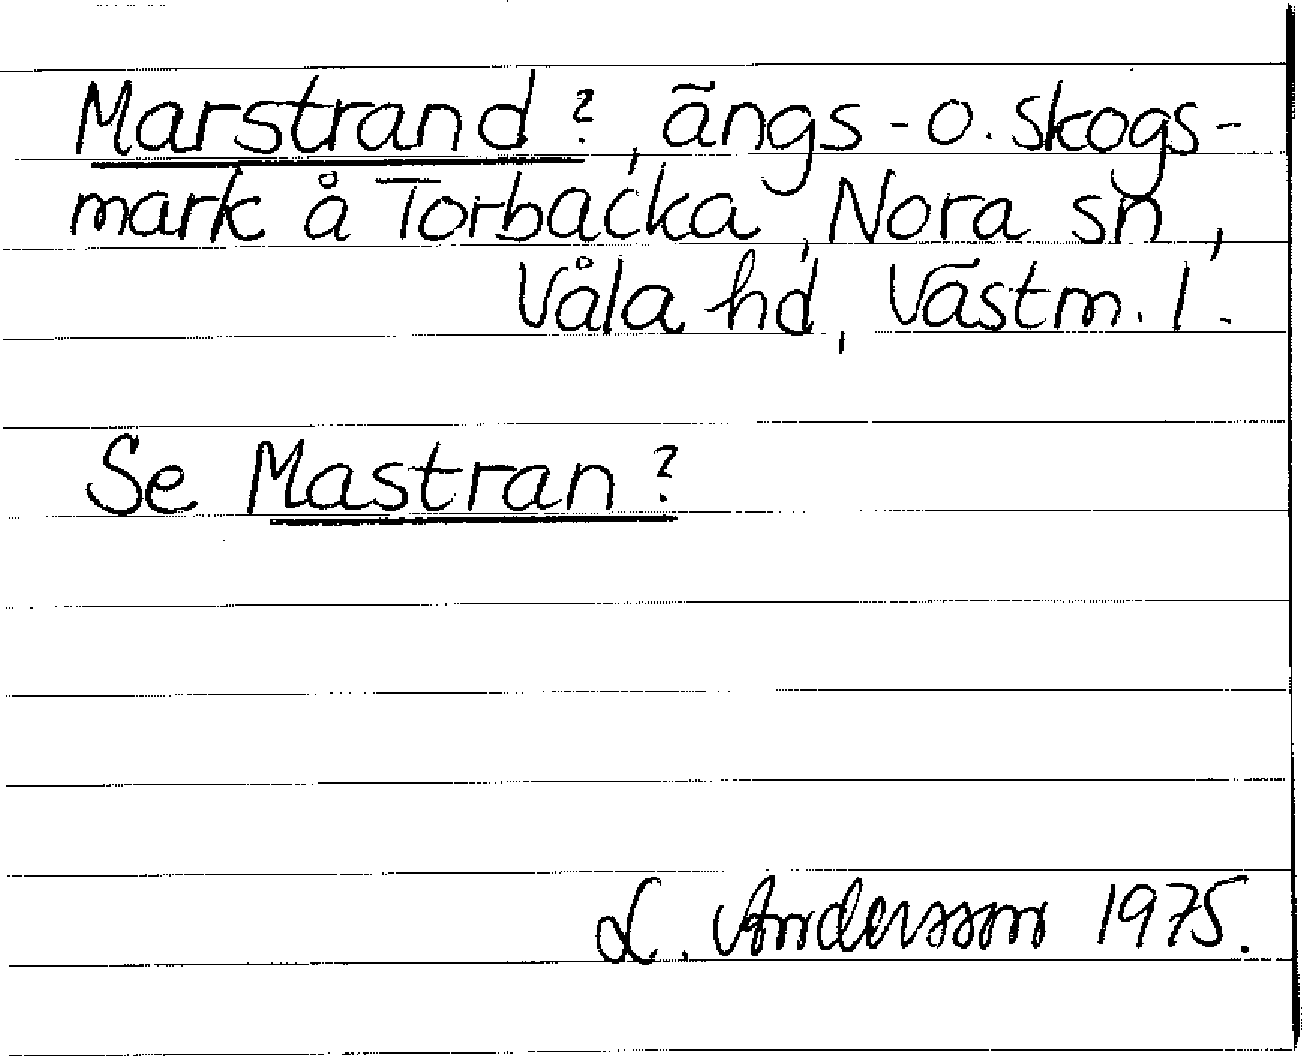 Marstrand?, ängs- o. skogs-
mark å Torbacka, Nora sn,
Våla hd, Västm. l.
Se Mastran?
L. Andersson 1975.